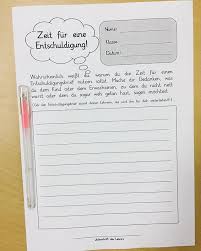 Zeit für eine
Entschuldigung!
Name:
Klasse:
Datum:
Wahrscheinlich weißt du warum du die Zeit für einen
Entschuldigungsbrief nutzen sollst. Mache dir Gedanken, was
du dem Kind oder dem Erwachsenen, zu dem du nicht nett
warst oder dem du sogar weh getan hast, sagen möchtest.
(Gib den Entschuldigungsbrief deinem Lehrer,